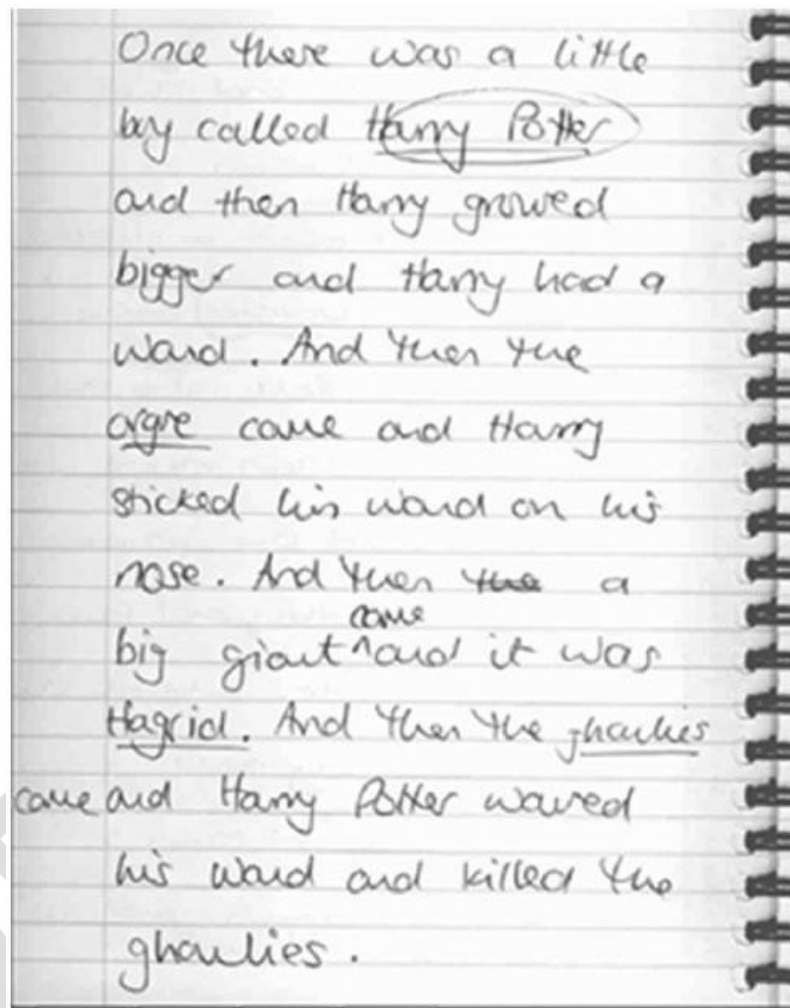 Once there was a little
boy called Harry Potter
and then Harry growed
bigger and Harry had a
wand. And then the
orgre came and Harry
sticked his wand on his
nose. And then the a
came
big giant ^ and it was
Hagrid. And then the ghoulies
came and Harry Potter waved
his wand and killed the
ghoulies.